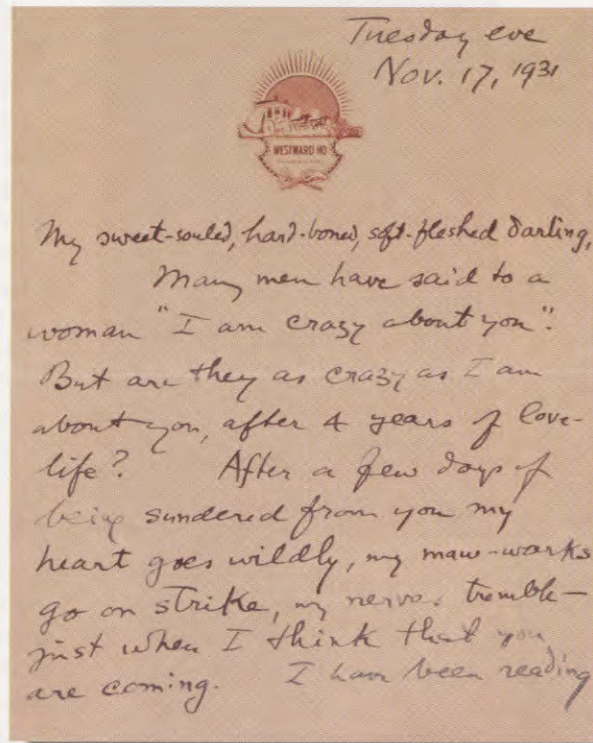 Tuesday eve
Nov. 17, 1931
WESTWARD HO
My sweet-souled, hard-boned, soft-fleshed darling,
Many men have said to a
woman "I am crazy about you".
But are they as crazy as I am
about you, after 4 years of love-
life? After a few days of
being sundered from you my
heart goes wildly, my maw-works
go on strike, my nerves tremble—
just when I think that you
are coming. I have been reading